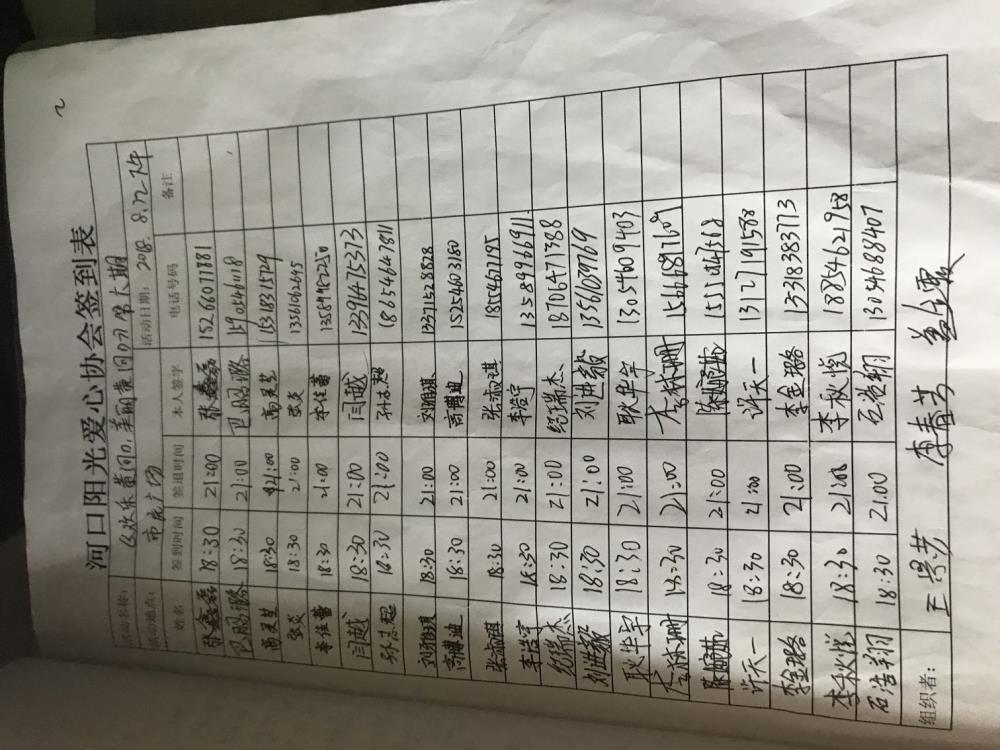 2
河口阳光爱心协会签到表
活动名称：《欢乐黄河口，美丽黄河口》常大期
活动地点：市庞广场 活动日期：2018.8.22下午
姓名 签到时间 签退时间 本人签字 电话号码 备注
鑫磊 18:30 21:00 鑫磊 15266071881
巴鹏璐 18:30 21:00 巴鹏璐
高灵芝 18:30 21:00 高灵芝 15318315729
张炎 18:30 21:00 张炎 13561062645
李佳蕾 18:30 21:00 李佳蕾
闫越 18:30 21:00 闫越 13396475373
孙志超 18:30 21:00 孙志超 18654647811
刘雅琪 18:30 21:00 刘雅琪 13371528828
高博迪 18:30 21:00 高博迪 15254603180
张淑琪 18:30 21:00 张淑琪 18554671195
李浩宇 18:30 21:00 李浩宇 13589966911
纪瑞杰 18:30 21:00 纪瑞杰 18706471388
刘进毅 18:30 21:00 刘进毅 13561039769
耿华宇 18:30 21:00 耿华宇 13054609403
李林珊 18:30 21:00 李林珊 15666897609
18:30 21:00
许天一 18:30 21:00 许天一 13127191588
李金璐 18:30 21:00 李金璐 15318383773
李秋悦 18:30 21:00 李秋悦 18854621958
石浩翔 18:30 21:00 石浩翔 13034688407
组织者： 王景芳 李春芳